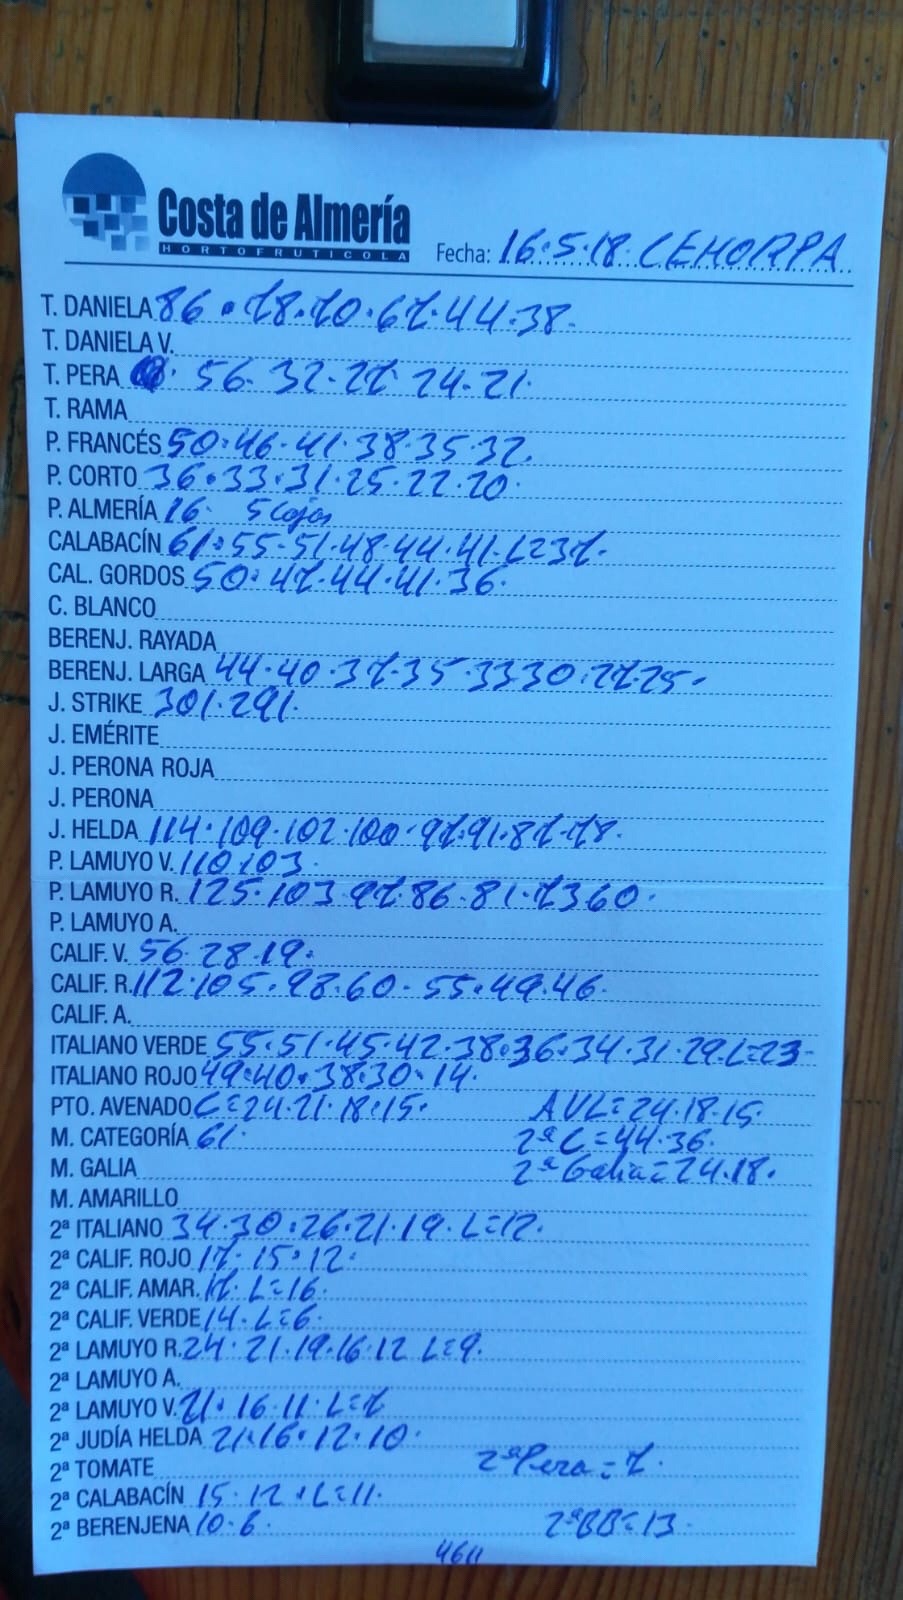 Costa de Almería
HORTOFRUTICOLA
Fecha: 16.5.18. CEHORPA
T. DANIELA 86.78.70.67.44.38.
T. DANIELA V.
T. PERA 56.32.27.24.21.
T. RAMA
P. FRANCÉS 50.46.41.38.35.32.
P. CORTO 36.33.31.25.22.20.
P. ALMERÍA 16. 5 cajas
CALABACÍN 61.55.51.48.44.41.L=37.
CAL. GORDOS 50.47.44.41.36.
C. BLANCO
BERENJ. RAYADA
BERENJ. LARGA 44.40.37.35.33 30.27.25.
J. STRIKE 301.291.
J. EMÉRITE
J. PERONA ROJA
J. PERONA
J. HELDA 114.109.102.100.97.91.87.78.
P. LAMUYO V. 110.103.
P. LAMUYO R. 125.103.97.86.81.73 60.
P. LAMUYO A.
CALIF. V. 56.28.19.
CALIF. R. 112.105.98.60.55.49.46.
CALIF. A.
ITALIANO VERDE 55.51.45.42.38.36.34.31.29.L=23
ITALIANO ROJO 49.40.38.30.14.
PTO. AVENADO C=24.21.18.15. AVL=24.18.15.
M. CATEGORÍA 61. 2ª C=44.36.
M. GALIA 2ª Galia=24.18.
M. AMARILLO
2ª ITALIANO 34.30.26.21.19.L=12.
2ª CALIF. ROJO 17.15.12.
2ª CALIF. AMAR. 17.L=16.
2ª CALIF. VERDE 14.L=6.
2ª LAMUYO R. 24.21.19.16.12 L=9.
2ª LAMUYO A.
2ª LAMUYO V. 21.16.11.L=7
2ª JUDÍA HELDA 21.16.12.10.
2ª TOMATE 2ª Pera=7.
2ª CALABACÍN 15.12.L=11.
2ª BERENJENA 10.6. 2ª BB=13.
4611